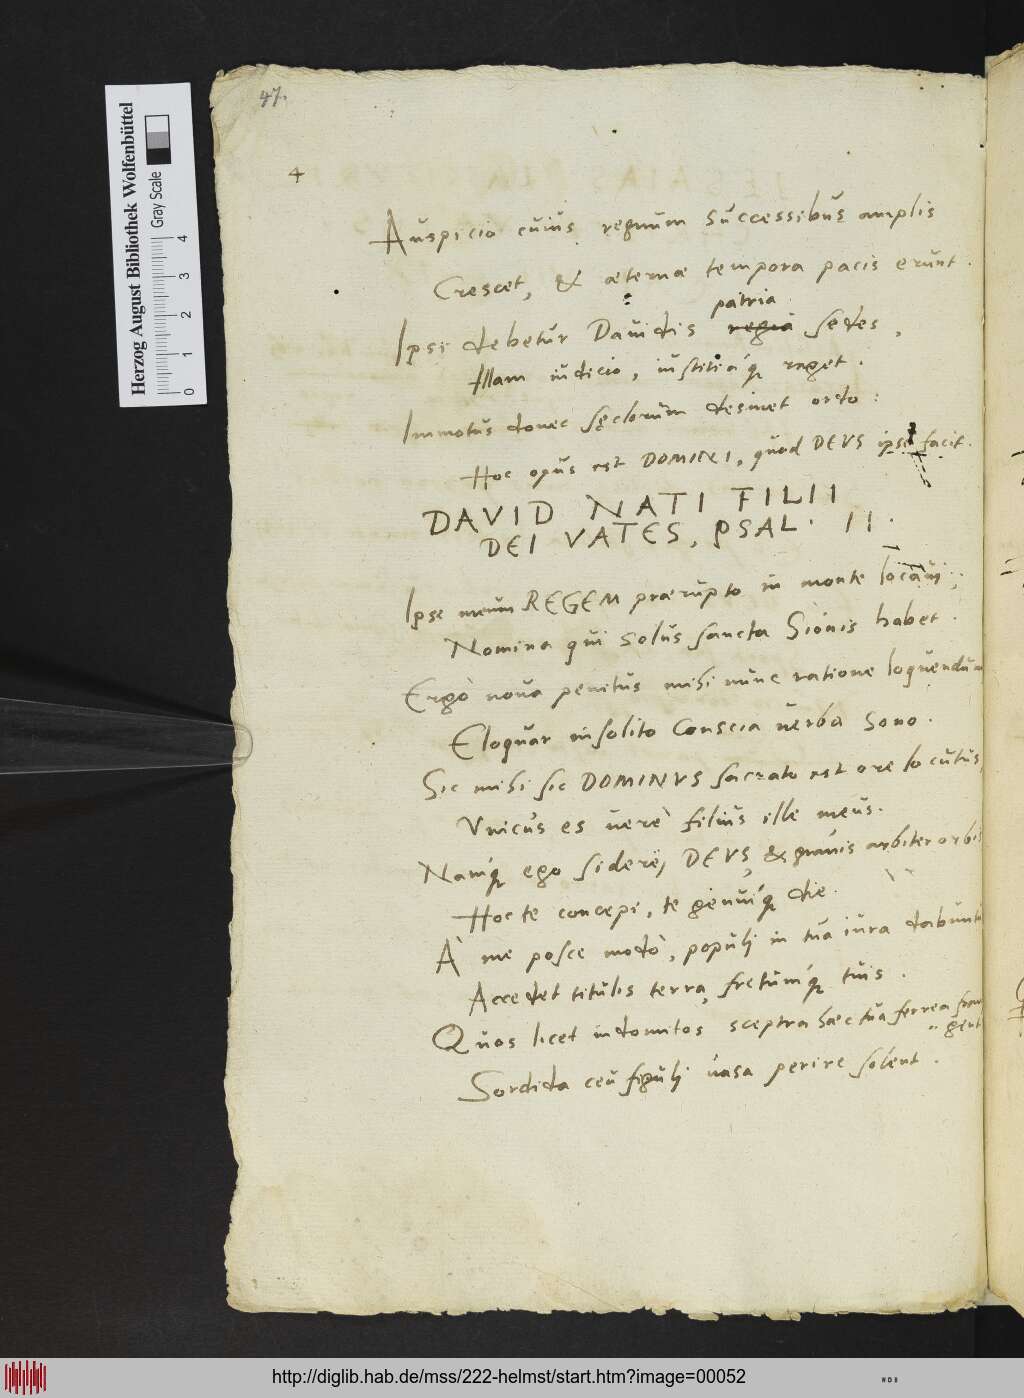 47.
4
Auspicio cuius regnum successibus amplis
Crescet, & æternæ tempora pacis erunt.
patria
Ipsi debetur Dauidis regia sedes,
Illam iudicio, iustitiáq; reget.
Immotus donec sęclorum desinet ordo:
Hoc opus est DOMINI, quod DEVS ipse facit.
DAVID NATI FILII
DEI VATES, PSAL. II.
Ipse meum REGEM prærupto in monte locaui;
Nomina qui solus sancta Sionis habet.
Ergò noua penitus mihi nunc ratione loquendum
Eloquar insolito conscia uerba sono.
Sic mihi sic DOMINVS sacrato est ore locutus,
Vnicus es uerè filius ille meus.
Namq; ego siderei, DEVS, & grauis arbiter orbis
Hoc te concepi, te genuiq; die.
À me posce modò, populi in tua iura dabuntur
Accedet titulis terra, fretumq; tuis.
Quos licet indomitos sceptra hæc tua ferrea fran
gent
Sordida ceu figuli uasa perire solent.
Herzog August Bibliothek Wolfenbüttel
Gray Scale
0 1 2 3 4
http://diglib.hab.de/mss/222-helmst/start.htm?image=00052